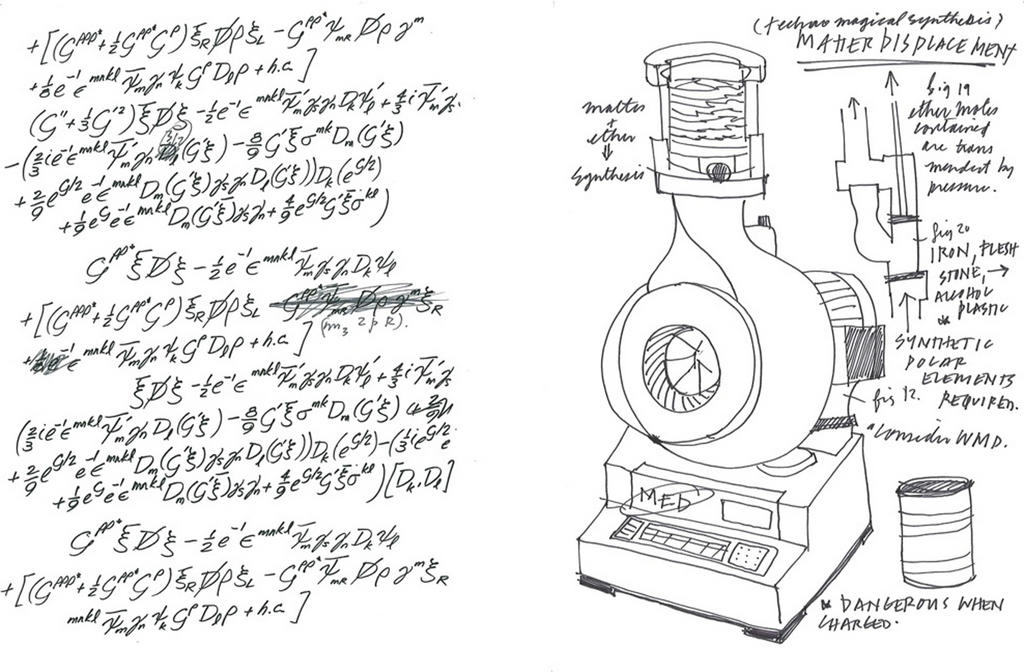 +[(G^{ρρρ*}+½G^{ρρ*}G^ρ)ξ̄_R D̸ρξ_L − G^{ρρ*}ψ̄_{mR} D̸ρ γ^m
+⅛e^{-1}ϵ^{mnkl} ψ̄_mγ_nψ_k G^ρ D_lρ + h.c]
(G''+⅓G'^2)ξ̄D̸ξ −½e^{-1}ϵ^{mnkl}ψ̄'_mγ_5γ_nD_kψ'_l+4/3 i ψ̄'_mγ_5
−(2/3 ie^{-1}ϵ^{mnkl}ψ̄'_mγ_nD_l(G'ξ) − 8/9 G'ξ̄σ^{mk}D_m(G'ξ)
+2/9 e^{G/2}e^{-1}ϵ^{mnkl}D_m(G'ξ̄)γ_5γ_nD_l(G'ξ))D_k(e^{G/2})
+1/9 e^G e^{-1}ϵ^{mnkl}D_m(G'ξ̄)γ_5γ_n+4/9 e^{G/2}G'ξ̄σ^{kl})
G^{ρρ*}ξ̄D̸ξ −½e^{-1}ϵ^{mnkl}ψ̄_mγ_5γ_nD_kψ_l
+[(G^{ρρρ*}+½G^{ρρ*}G^ρ)ξ̄_R D̸ρξ_L
(m_3 2ρR).
ϵ^{mnkl}ψ̄_mγ_nψ_k G^ρ D_lρ + h.c]
ξ̄D̸ξ −½e^{-1}ϵ^{mnkl}ψ̄'_mγ_5γ_nD_kψ'_l+4/3 i ψ̄'_mγ_5
(2/3 ie^{-1}ϵ^{mnkl}ψ̄'_mγ_nD_l(G'ξ) − 8/9 G'ξ̄σ^{mk}D_m(G'ξ)
+2/9 e^{G/2}e^{-1}ϵ^{mnkl}D_m(G'ξ̄)γ_5γ_nD_l(G'ξ))D_k(e^{G/2})−(⅓ie^{G/2}e
+1/9 e^G e^{-1}ϵ^{mnkl}D_m(G'ξ̄)γ_5γ_n+4/9 e^{G/2}G'ξ̄σ^{kl})[D_k,D_l]
G^{ρρ*}ξ̄D̸ξ −½e^{-1}ϵ^{mnkl}ψ̄_mγ_5γ_nD_kψ_l
+[(G^{ρρρ*}+½G^{ρρ*}G^ρ)ξ̄_R D̸ρξ_L − G^{ρρ*}ψ̄_{mR} D̸ρ γ^mξ_R
^{mnkl}ψ̄_mγ_nψ_k G^ρ D_lρ + h.c]
(techno magical synthesis)
MATTER DISPLACEMENT
matter
+
ether
⇓
synthesis
fig 19
ether moles
contained
are trans
mendent by
pressure.
fig 20
IRON, FLESH
STONE, →
ALCOHOL
PLASTIC
*
SYNTHETIC
POLAR
ELEMENTS
REQUIRED.
fig 12.
"Consider WMD.
MED
* DANGEROUS WHEN
CHARGED.